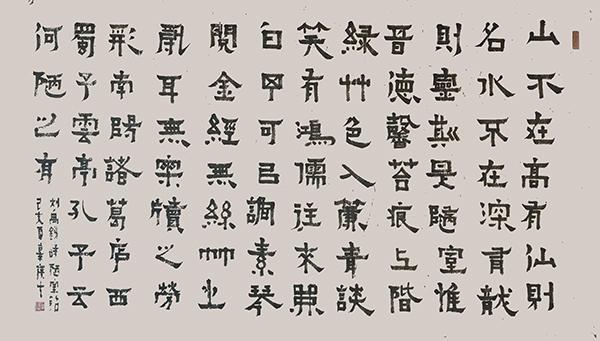 山不在高有仙則
名水不在深有龍
則靈斯是陋室惟
吾德馨苔痕上階
綠艸色入簾青談
笑有鴻儒往來無
白丁可㠯調素琴
閱金經無絲竹之
亂耳無案牘之勞
形南陽諸葛庐西
蜀子雲亭孔子云
何陋之有
刘禹錫詩陋室銘
己亥夏